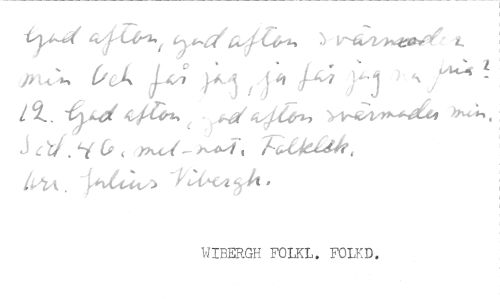 God afton, god afton svärmoder
min Och får jag, ja får jag nu fria?
12. God afton, god afton svärmoder min.
Sid. 46. mel-not. Folklek.
Arr. Julius Vibergh.
WIBERGH FOLKL. FOLKD.